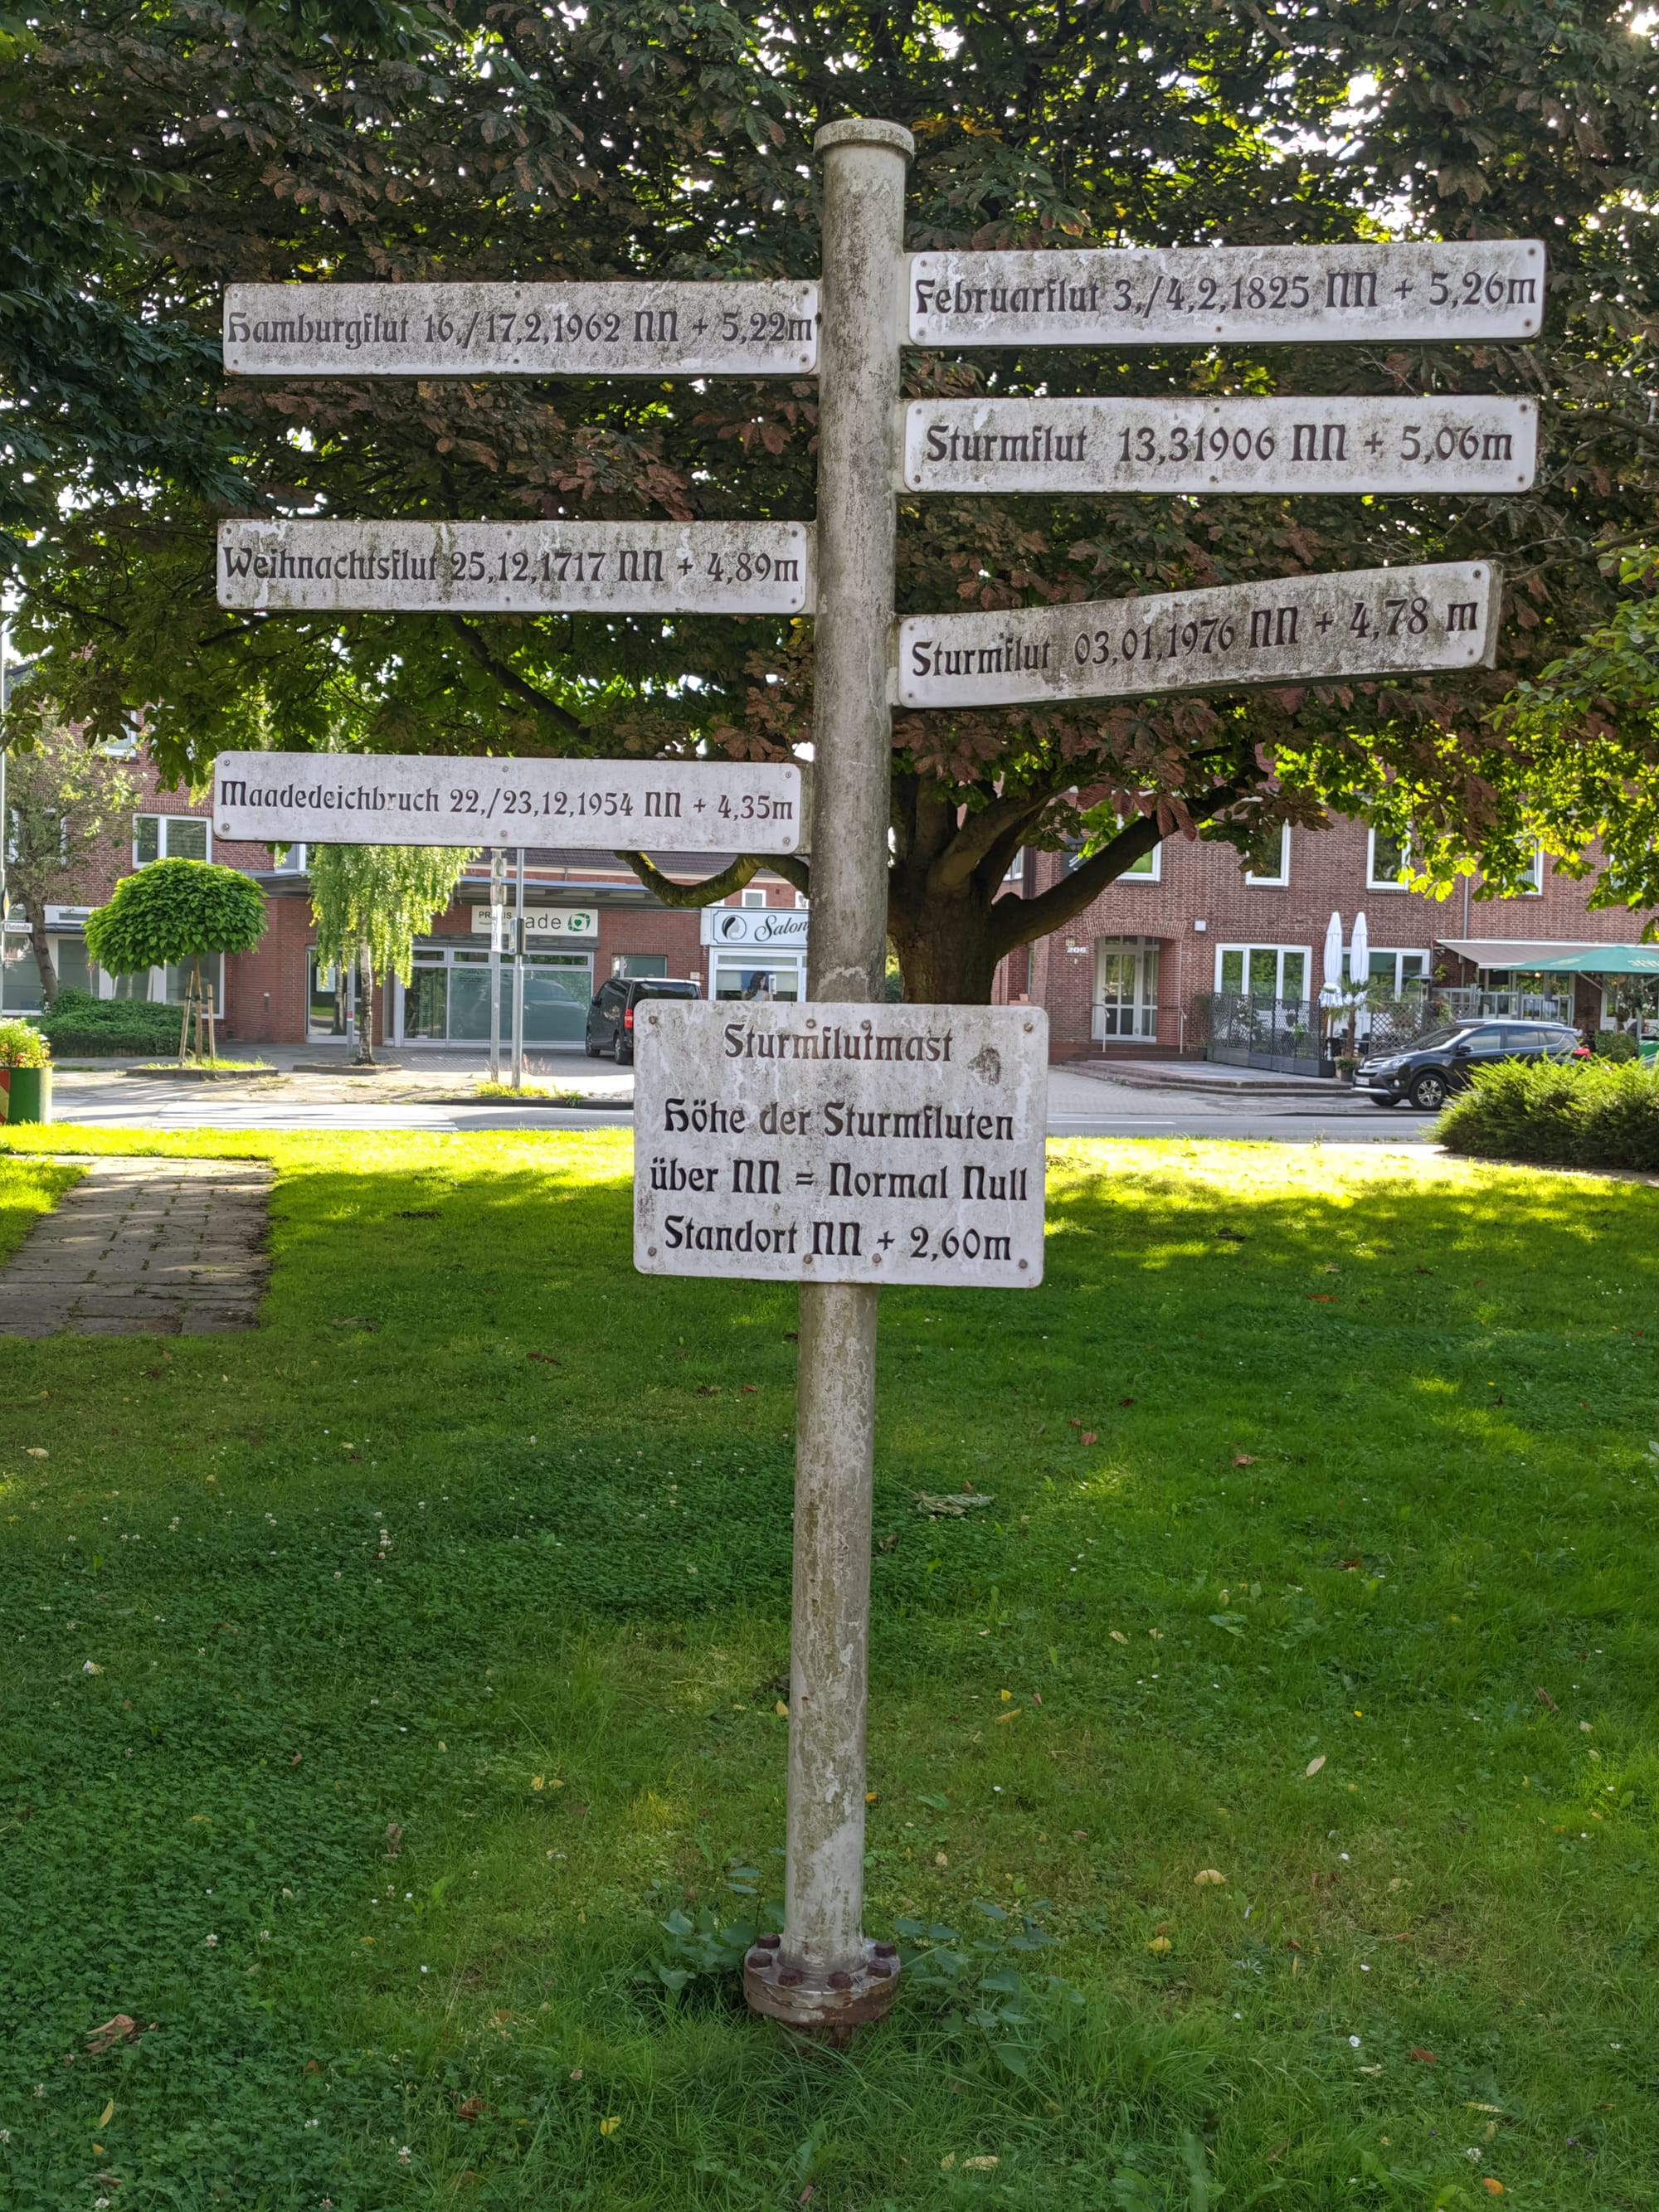 Februarflut 3,/4,2,1825 NN + 5,26m
Hamburgflut 16,/17,2,1962 NN + 5,22m
Sturmflut 13,31906 NN + 5,06m
Weihnachtsflut 25,12,1717 NN + 4,89m
Sturmflut 03,01,1976 NN + 4,78 m
Maadedeichbruch 22,/23,12,1954 NN + 4,35m
Sturmflutmast
Höhe der Sturmfluten
über NN = Normal Null
Standort NN + 2,60m
Salon
206